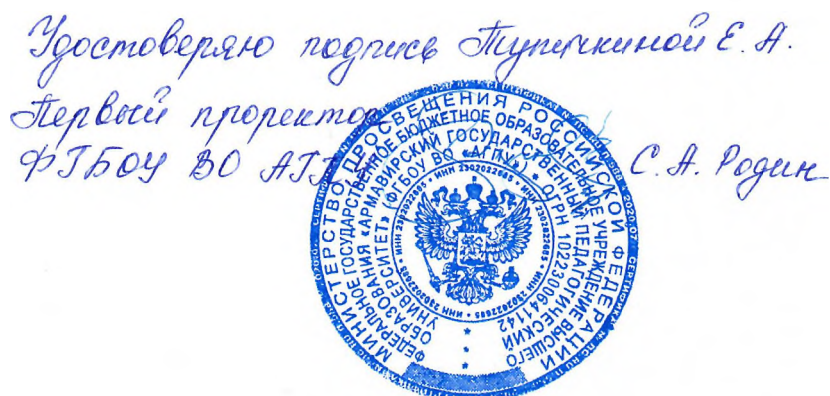 Удостоверяю подпись Тупичкиной Е. А.
Первый проректор
ФГБОУ ВО АГПУ
С. А. Родин
МИНИСТЕРСТВО ПРОСВЕЩЕНИЯ РОССИЙСКОЙ ФЕДЕРАЦИИ
ФЕДЕРАЛЬНОЕ ГОСУДАРСТВЕННОЕ БЮДЖЕТНОЕ ОБРАЗОВАТЕЛЬНОЕ УЧРЕЖДЕНИЕ ВЫСШЕГО
ОБРАЗОВАНИЯ «АРМАВИРСКИЙ ГОСУДАРСТВЕННЫЙ ПЕДАГОГИЧЕСКИЙ
УНИВЕРСИТЕТ» (ФГБОУ ВО «АГПУ») * ОГРН 1022300641142
* ИНН 2302022685 * ИНН 2302022685 * ИНН 2302022685 * ИНН 2302022685